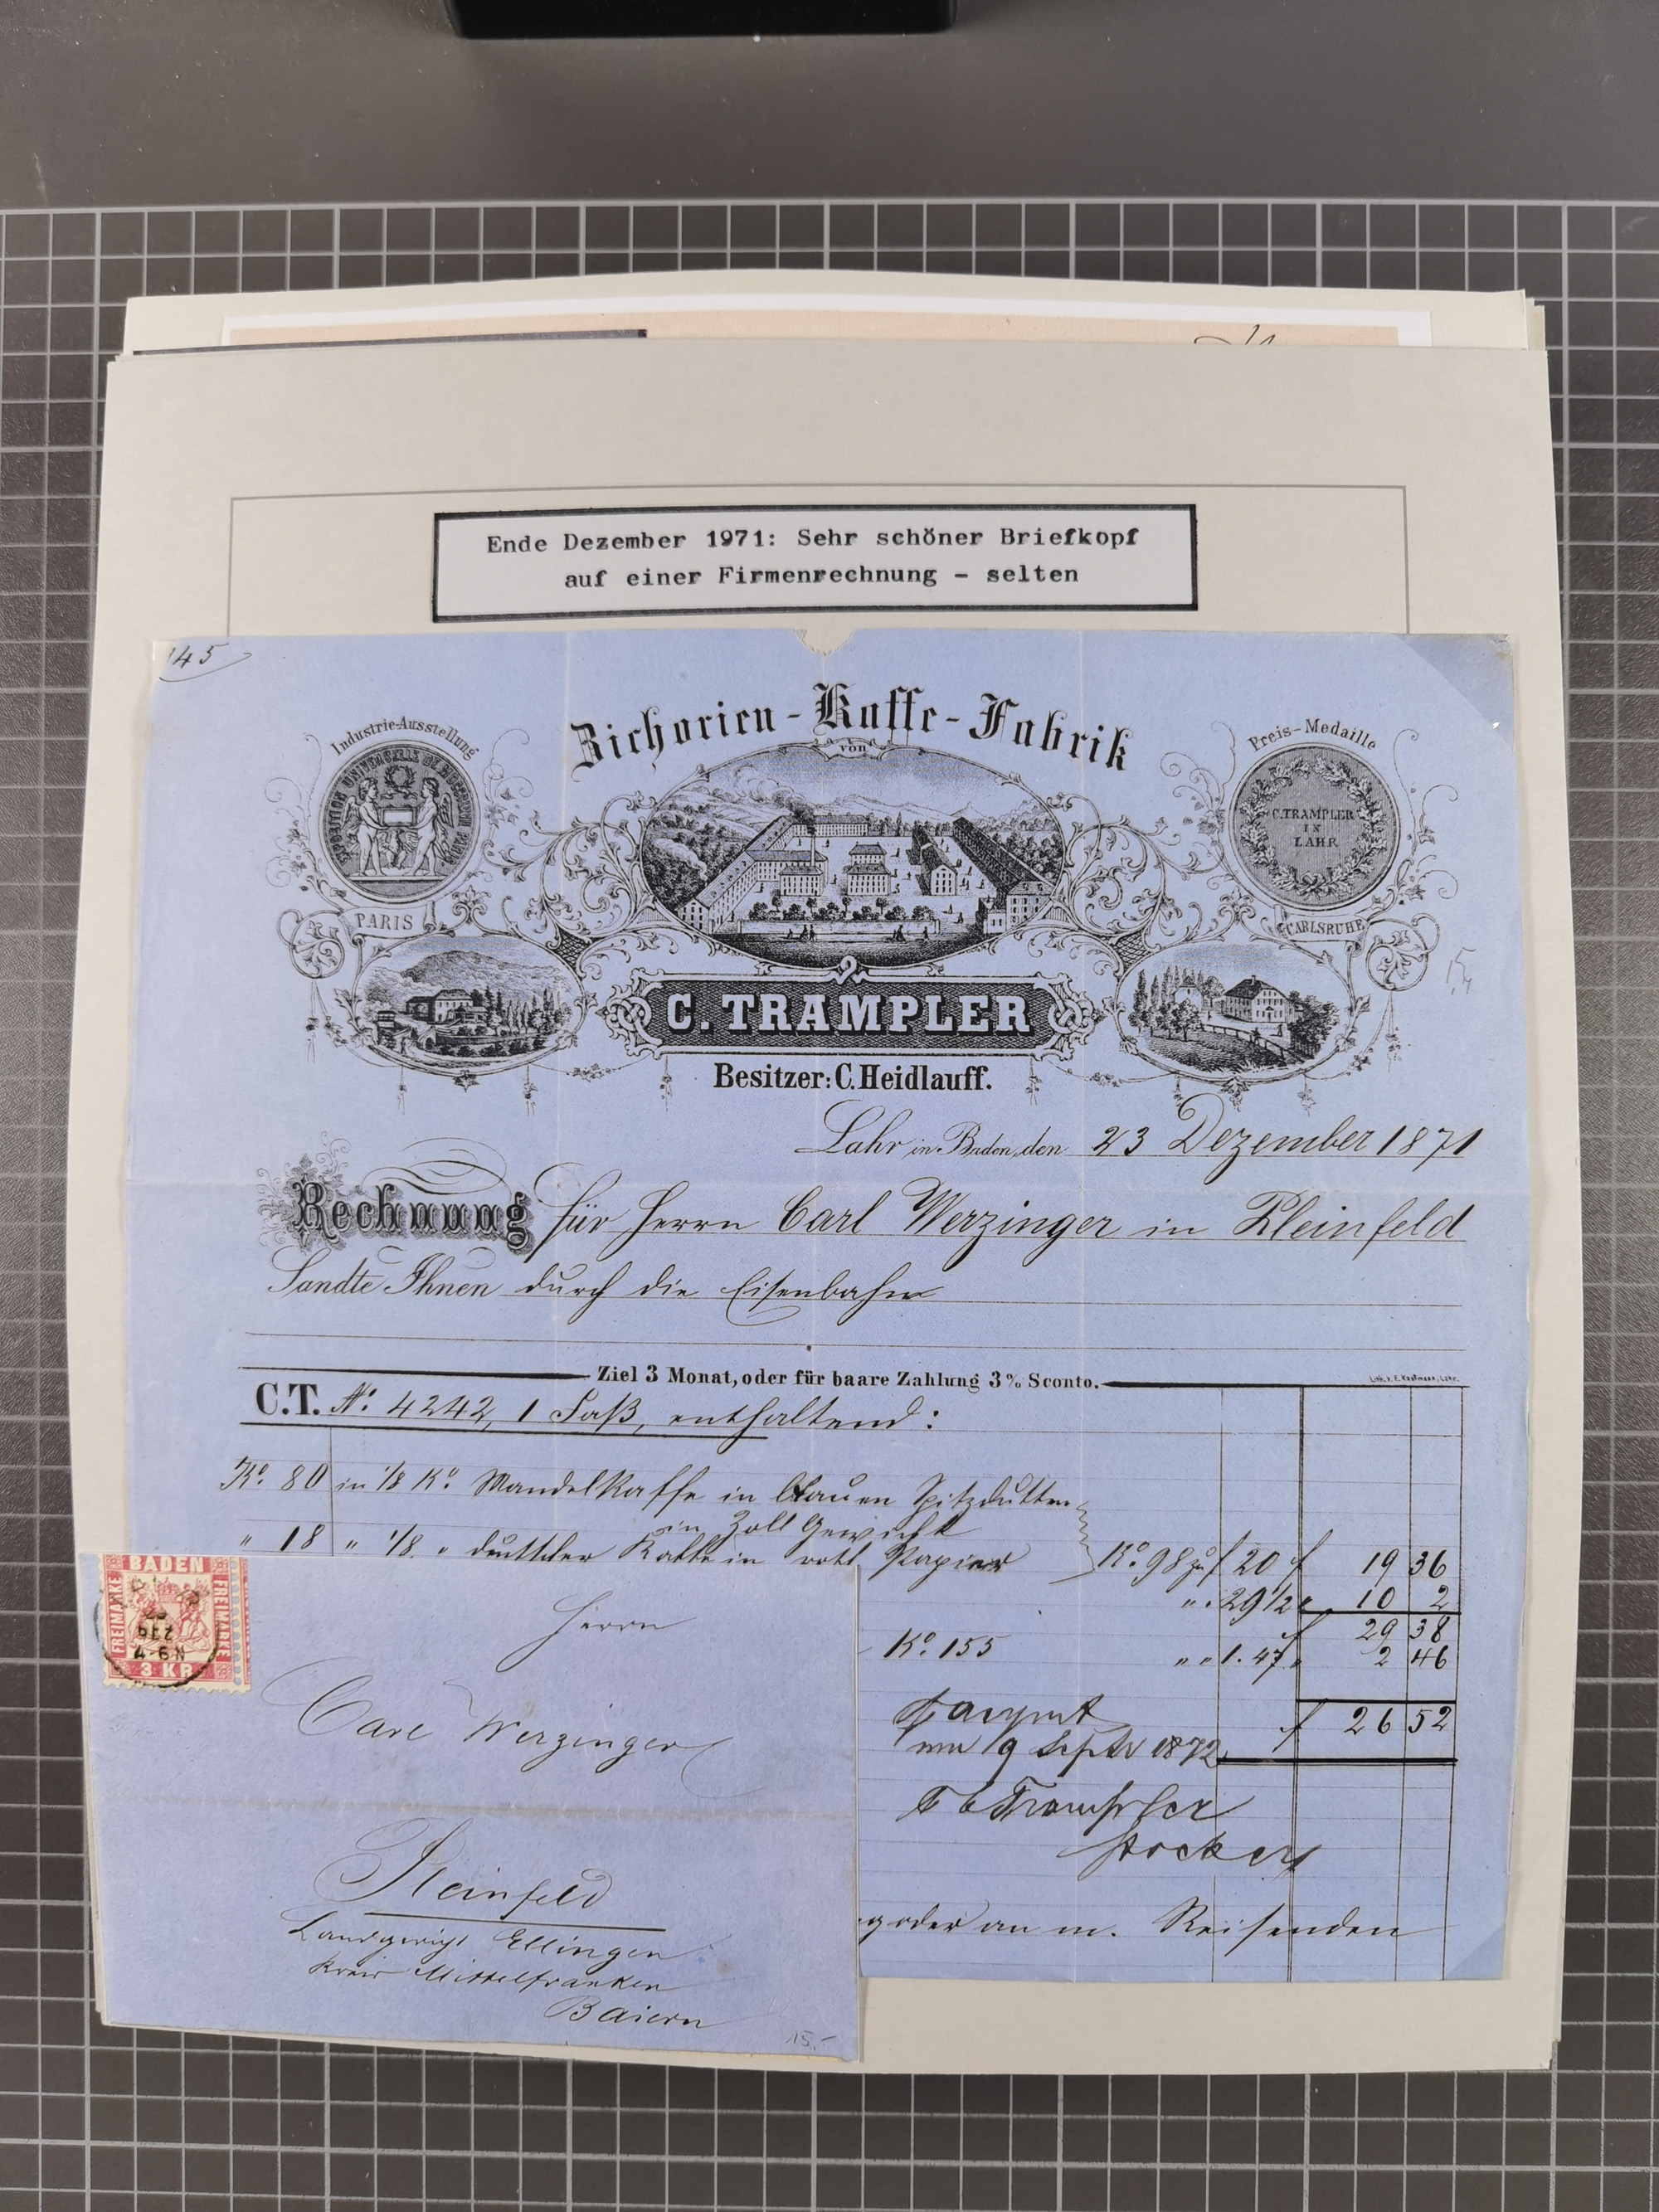 Ende Dezember 1971: Sehr schöner Briefkopf
auf einer Firmenrechnung – selten
145
Zichorien-Kaffe-Fabrik
von
Industrie-Ausstellung
EXPOSITION UNIVERSELLE PARIS
PARIS
Preis-Medaille
C. TRAMPLER
IN
LAHR
CARLSRUHE
C. TRAMPLER
Besitzer: C. Heidlauff.
Lahr in Baden, den 23 Dezember 1871
Rechnung für Herrn Carl Werzinger in Pleinfeld
Sandte Ihnen durch die Eisenbahn
Ziel 3 Monat, oder für baare Zahlung 3% Sconto.
Lith. v. E. Kaufmann, Lahr.
C.T. No. 4242, 1 Faß, enthaltend:
Ko. 80 in 1/8 Ko. Mandelkaffe in blauen Spitzdutten
in Zoll Gewicht
" 18 " 1/8 " deutscher Kaffe in roth Papier Ko. 98 zu f 20 f 19 36
" " 29 1/2 " 10 2
f 29 38
Ko. 155 " " 1.47 " 2 46
f 26 52
9 Septbr 1872
C Trampler
oder an m. Reisenden
BADEN
FREIMARKE
FREIMARKE
3 KR
23 DEZ
4-6 N
Herrn
Carl Werzinger
Pleinfeld
Landgericht Ellingen
Kreis Mittelfranken
Baiern
15,-